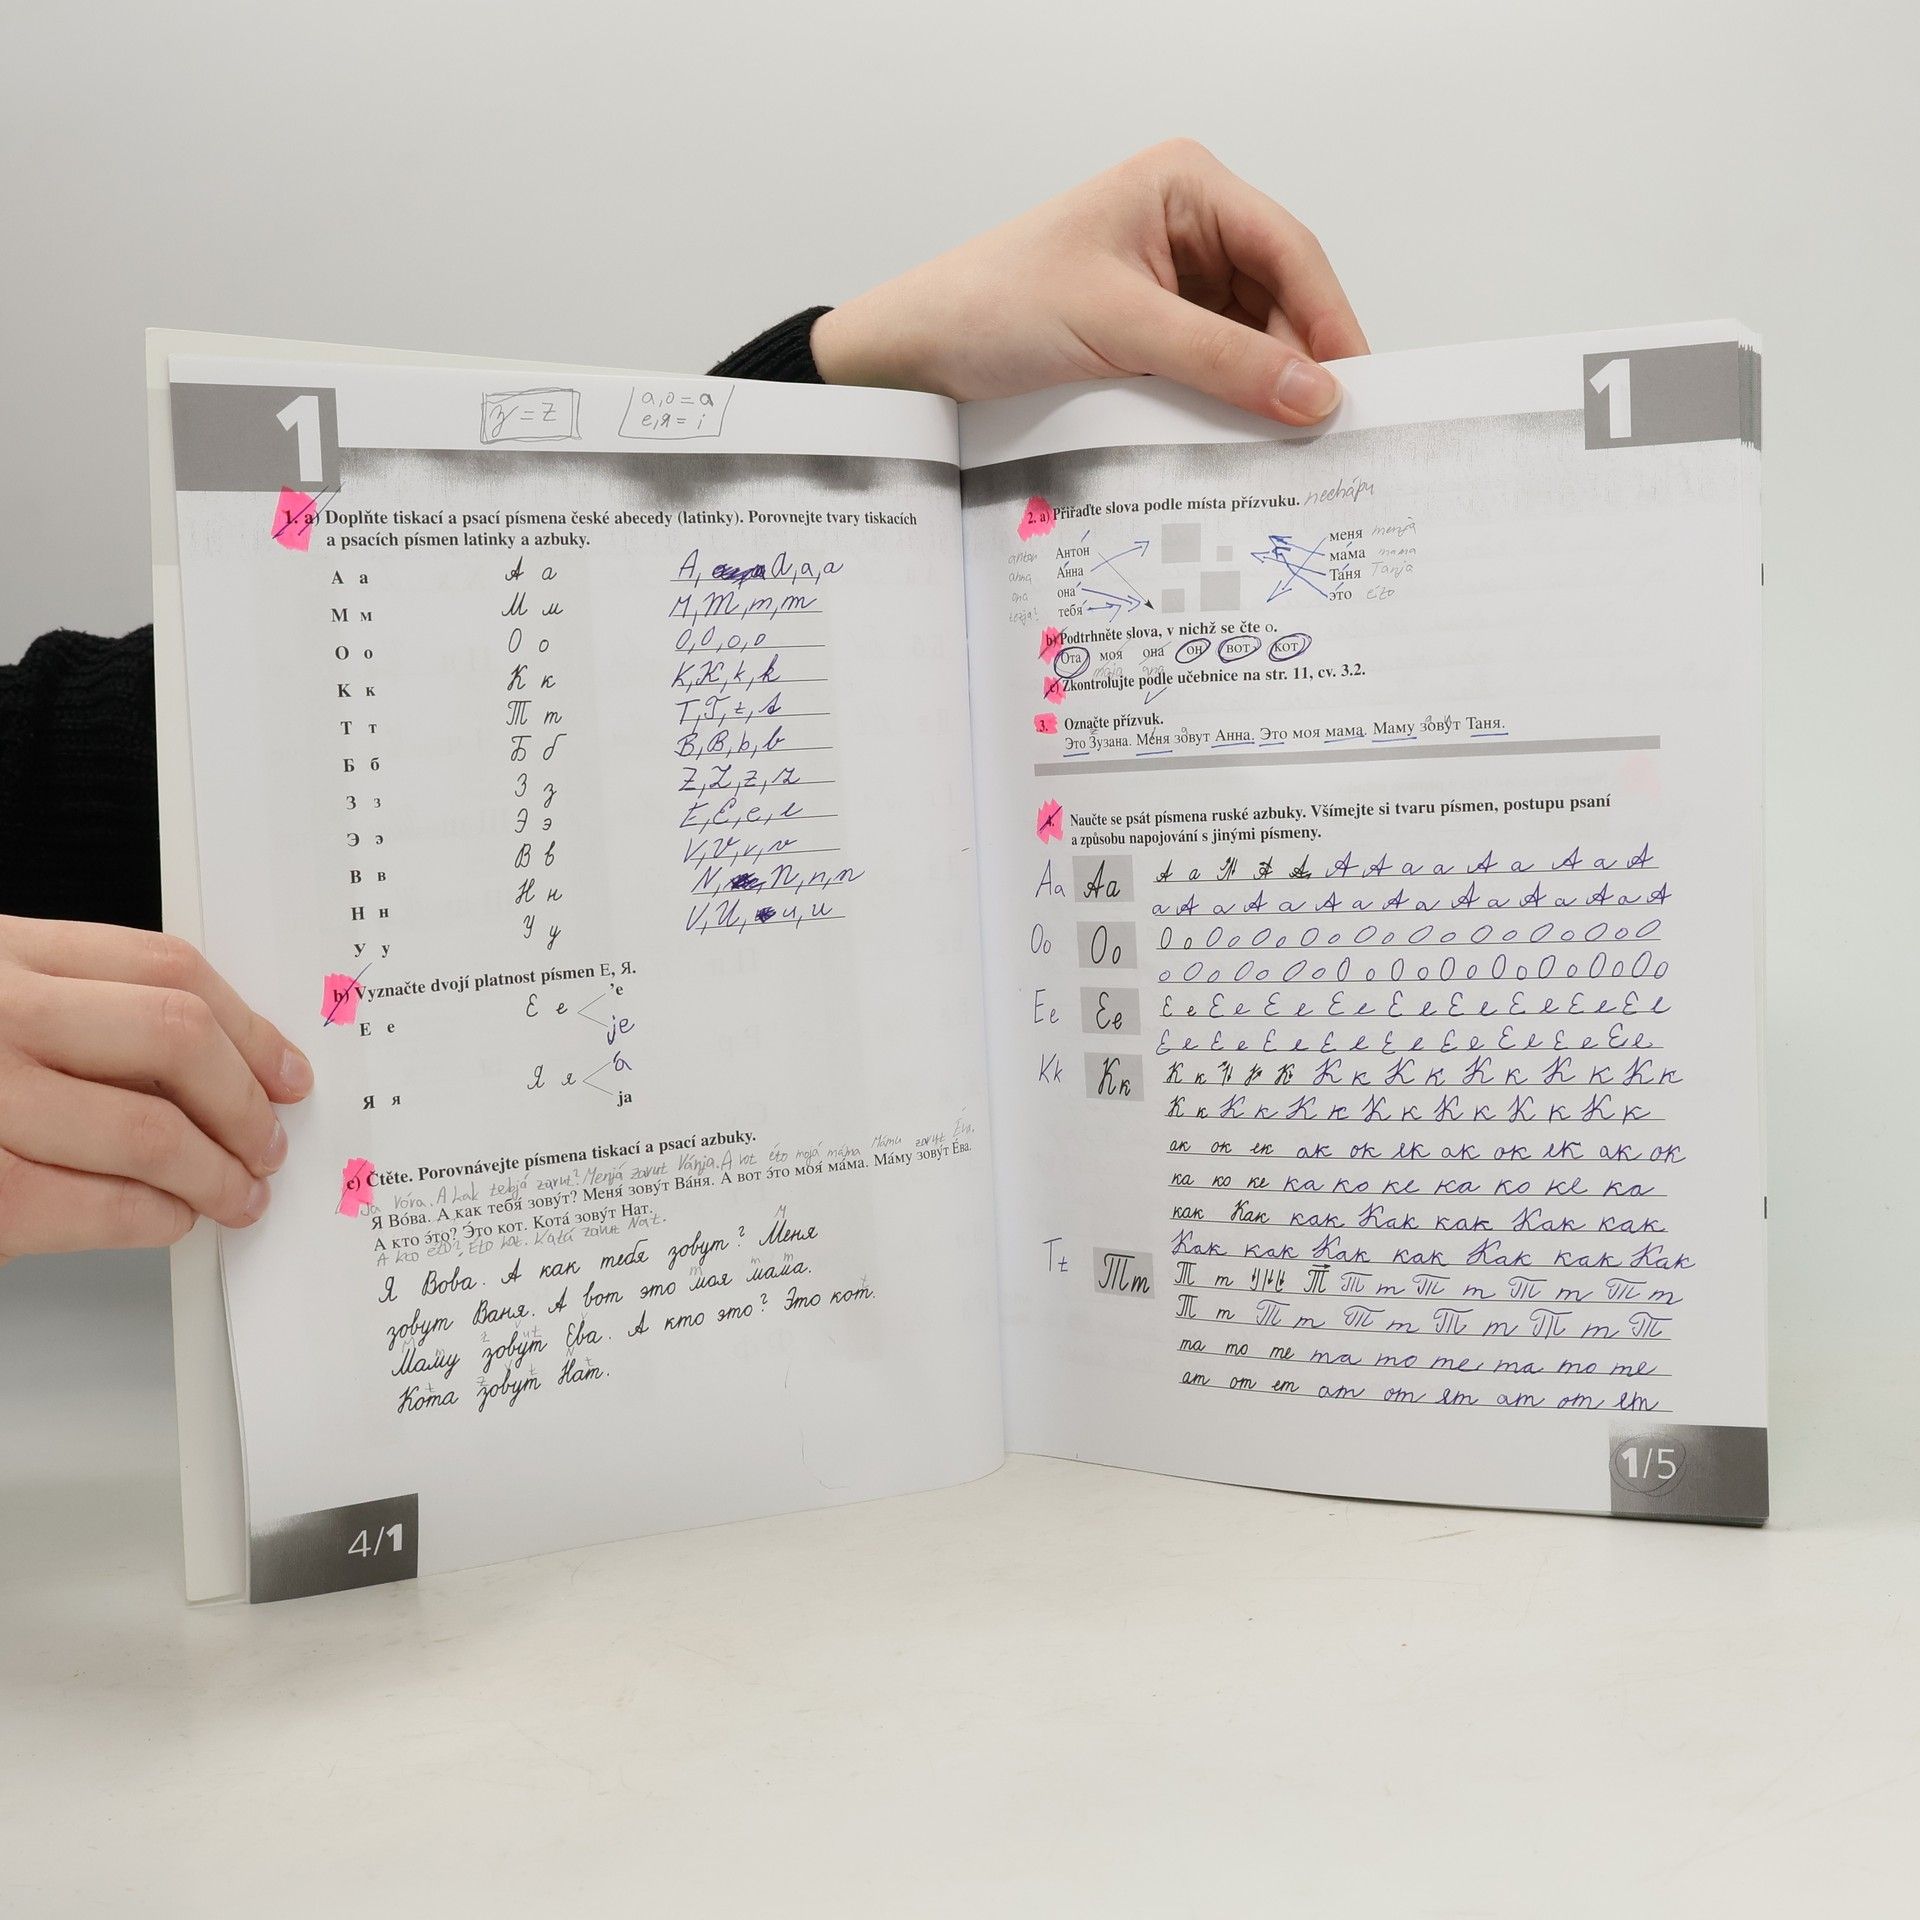 1
з = z
a, o = a
e, я = i
1. a) Doplňte tiskací a psací písmena české abecedy (latinky). Porovnejte tvary tiskacích
a psacích písmen latinky a azbuky.
А а А а A, A, a, a
М м М м M, M, m, m
О о О о O, O, o, o
К к К к K, K, k, k
Т т Т т T, T, t, t
Б б Б б B, B, b, b
З з З з Z, Z, z, z
Э э Э э E, E, e, e
В в В в V, V, v, v
Н н Н н N, N, n, n
У у У у U, U, u, u
b) Vyznačte dvojí platnost písmen Е, Я.
Е е Е е 'e
je
Я я Я я 'a
ja
c) Čtěte. Porovnávejte písmena tiskací a psací azbuky.
Ja Vóva. A kak tebjá zavut? Menjá zavut Vánja. A vot éto mojá máma Mámu zavut Éva.
Я Во́ва. А как тебя́ зову́т? Меня́ зову́т Ва́ня. А вот э́то моя́ ма́ма. Ма́му зову́т Е́ва.
А кто э́то? Э́то кот. Кота́ зову́т Нат.
A kto éto? Éto kot. Katá zavut Nat.
Я Вова. А как тебя зовут? Меня
зовут Ваня. А вот это моя мама.
Маму зовут Ева. А кто это? Это кот.
Кота зовут Нат.
4/1
1
2. a) Přiřaďte slova podle místa přízvuku. nechápu
anton Анто́н
anna А́нна
ana она́
тебя́
меня́ menjá
ма́ма mama
Та́ня Tanja
э́то éto
b) Podtrhněte slova, v nichž se čte o.
Ота моя она он вот кот
c) Zkontrolujte podle učebnice na str. 11, cv. 3.2.
3. Označte přízvuk.
Это Зузана. Меня зовут Анна. Это моя мама. Маму зовут Таня.
4. Naučte se psát písmena ruské azbuky. Všímejte si tvaru písmen, postupu psaní
a způsobu napojování s jinými písmeny.
Aa Аа А а А А А А А а а А а А а А
а А а А а А а А а А а А а А
Oo Оо О о О о О о О о О о О о О о О о О о
о О о О о О о О о О о О о О о О о
Ee Ее Е е Е е Е е Е е Е е Е е Е е Е е Е е
Е е Е е Е е Е е Е е Е е Е е Е е
Kk Кк К к К К К К к К к К к К к К к
К к К к К к К к К к К к К к
ак ок ек ак ок ек ак ок ек ак ок
ка ко ке ка ко ке ка ко ке ка
как Как как Как как Как как
Как как Как как Как как Как
Tt Тт Т т Т Т т Т т Т т Т т
Т т Т т Т т Т т Т т Т
та то те та то те та то те
ат от ет ат от ет ат от ет
1/5